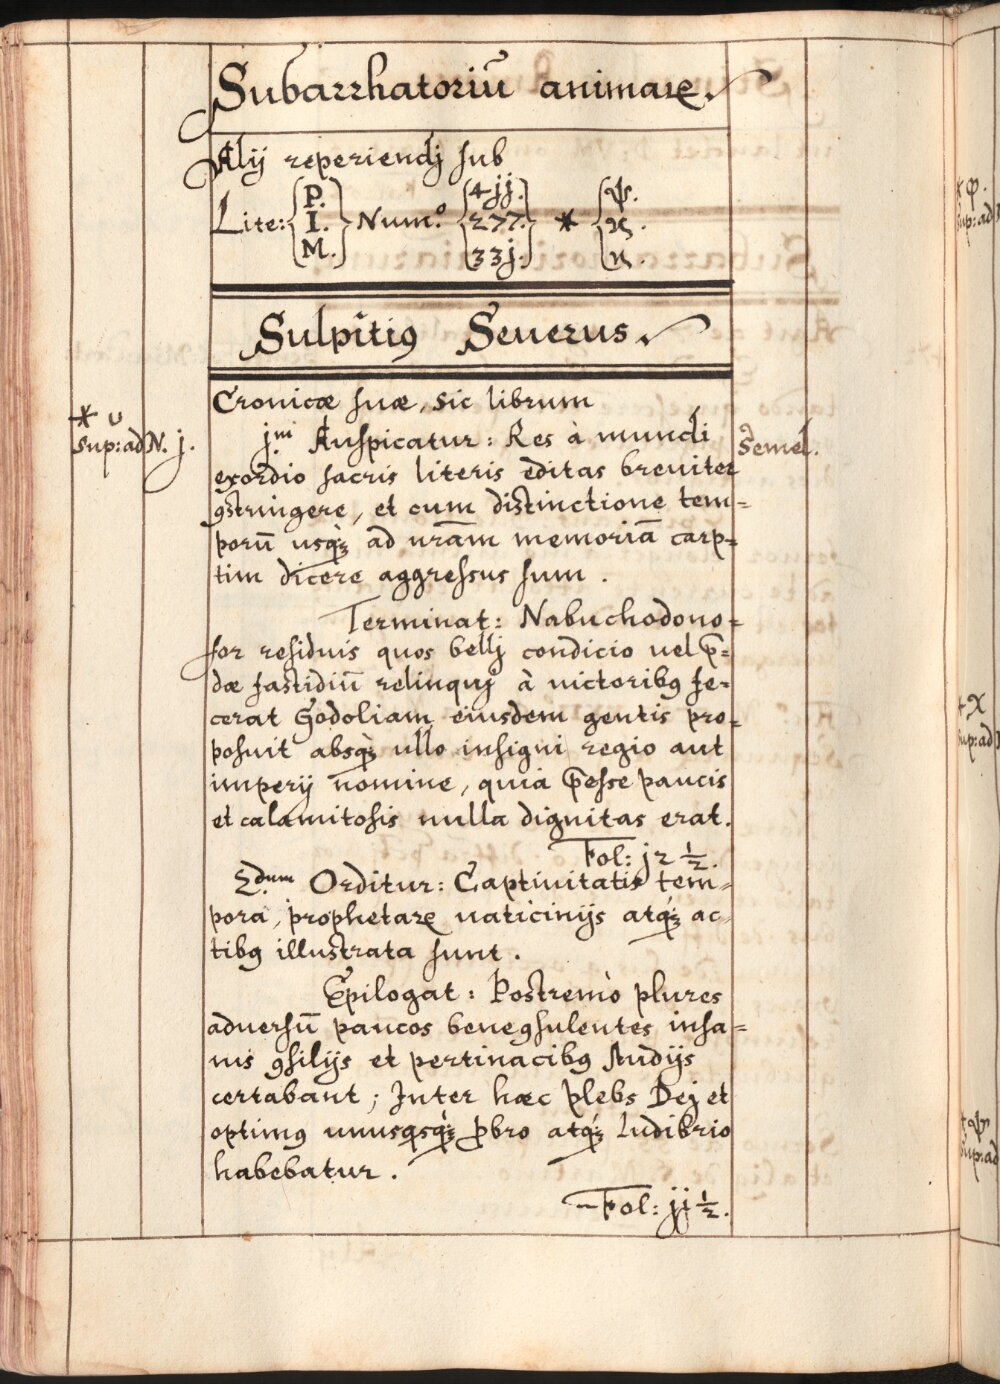 Subarrhatoriū animarꝝ.
Alij reperiendj sub
Lite: { P. I. M. } Num.º { 4jj. 277. 33j. } * { ψ. ϗ. ϰ. }
Sulpitiꝰ Seuerus.
Cronicæ suæ, sic librum
* υ
sup: ad N. j.
j.mi Auspicatur: Res à mundi
Semel.
exordio sacris literis editas breuiter
ꝯstringere, et cum distinctione tem=
porū usqꝫ ad nr̄am memoriā carp=
tim dicere aggressus sum.
Terminat: Nabuchodono=
sor residuis quos bellj condicio uel p̄=
dæ fastidiū relinquj à uictoribꝰ fe=
cerat Godoliam eiusdem gentis pro=
posuit absqꝫ ullo insigni regio aut
imperij nomine, quia p̄esse paucis
et calamitosis nulla dignitas erat.
Fol: j2 ½.
2.dum Orditur: Captiuitatis tem=
pora, prophetarꝝ uaticinijs atqꝫ ac=
tibꝰ illustrata sunt.
Epilogat: Postremò plures
aduersū paucos beneꝯsulentes insa=
nis ꝯsilijs et pertinacibꝰ studijs
certabant; Inter hæc plebs Dej et
optimꝰ unusqsqꝫ ꝓbro atqꝫ ludibrio
habebatur.
Fol: jj ½.
φ.
sup: ad
+ χ
sup: ad
+ ψ
sup: ad